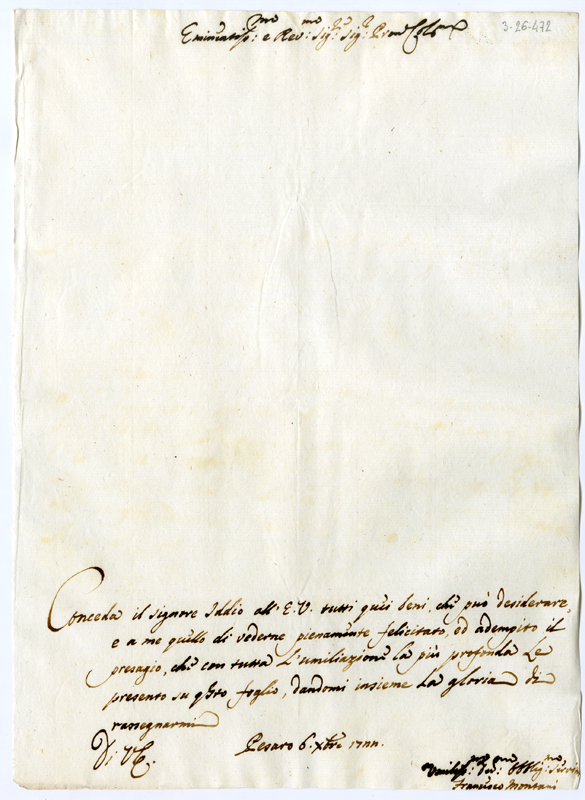 3-26-472
Eminentiss:mo e Rev:mo Sig:re Sig:re Pron Col:mo
Conceda il signore Iddio all' E.V. tutti quei beni, che può desiderare,
e a me quello di vederne pienamente felicitato, ed adempito il
presagio, che con tutta l'umiliazione la più profonda Le
presento su q̃sto foglio, dandomi insieme la gloria di
rassegnarmi
Di V.E. Pesaro 6. Xbre
Umiliss:mo Dev:mo Obblig:mo Servitore
Francesco Montani